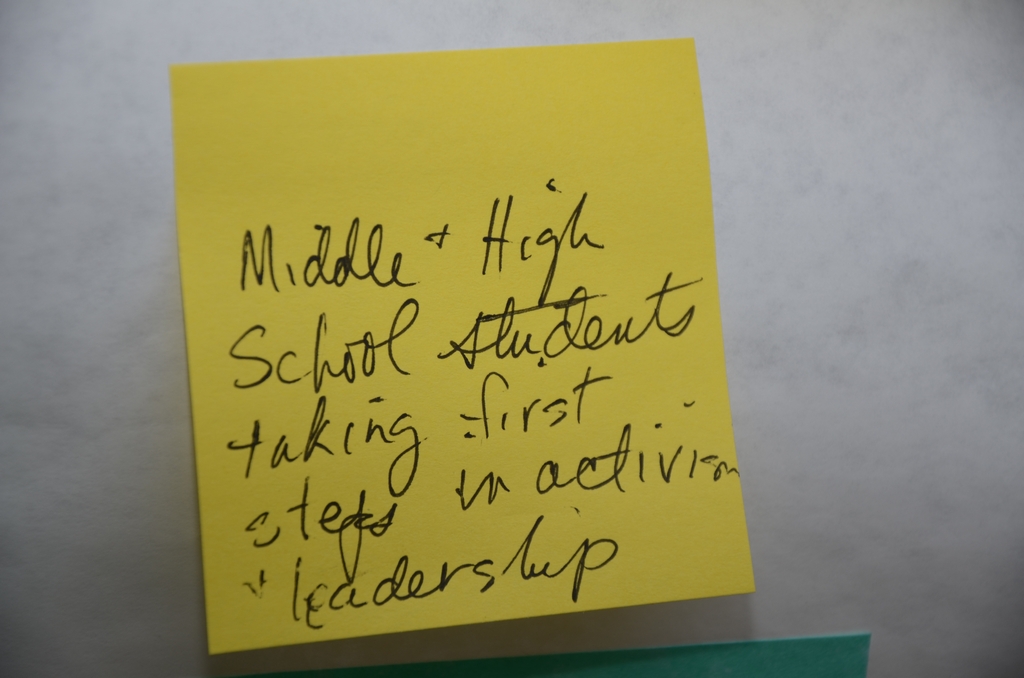 Middle + High
School students
taking first
steps in activism
+ leadership